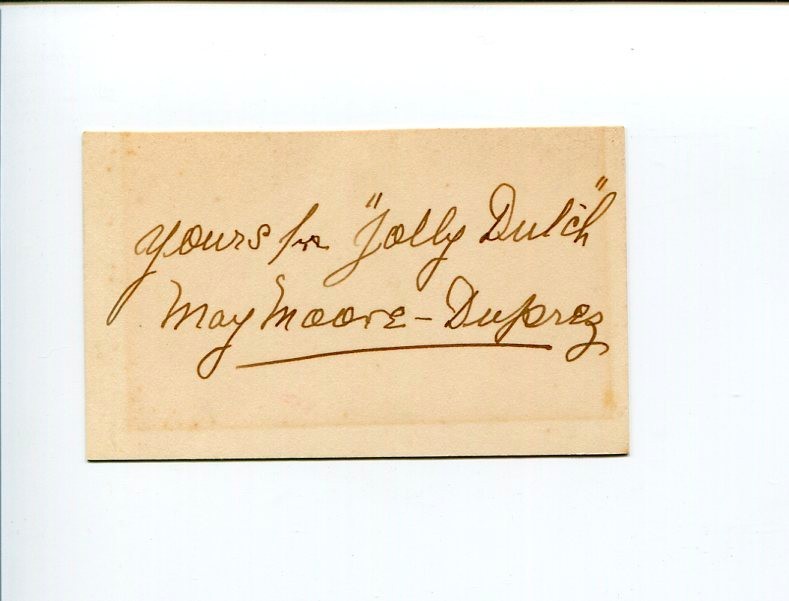 yours for "Jolly Dutch"
May Moore-Duprez